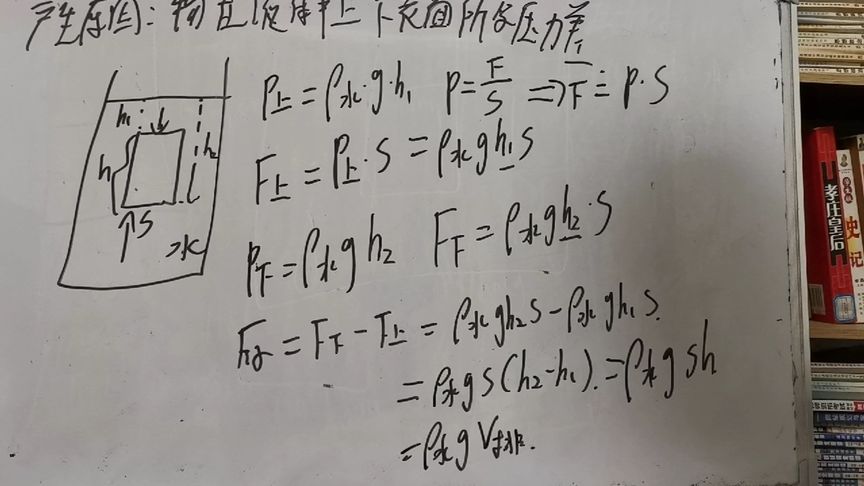 产生原因:物在液体中上下表面所受压力差
P上=ρ水·g·h₁ P=F/S ⇒F=P·S
h₁
F上=P上·S=ρ水gh₁S
h₂
h
S
水
P下=ρ水gh₂ F下=ρ水gh₂·S
F浮=F下-F上=ρ水gh₂S-ρ水gh₁S
=ρ水gS(h₂-h₁)=ρ水gSh
=ρ水gV排.
孝庄皇后
史记